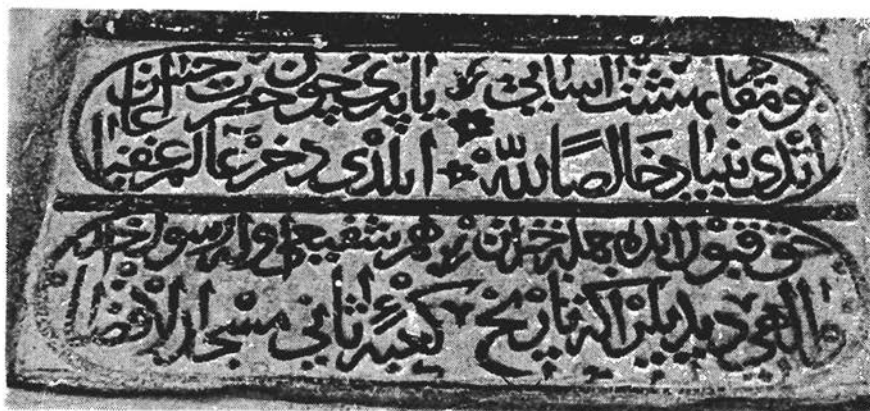 بو مقام بهشت اسایی یاپدی چون حضرت
اتدی بنیاد خالصًا لله ایلدی دخر عالم عقبا
حق قبول ایده جمله خیراتن هم شفیعی اوله رسول خدا
دیدیلر اکا تاریخ کعبهٔ ثانی مسجد الاقصا